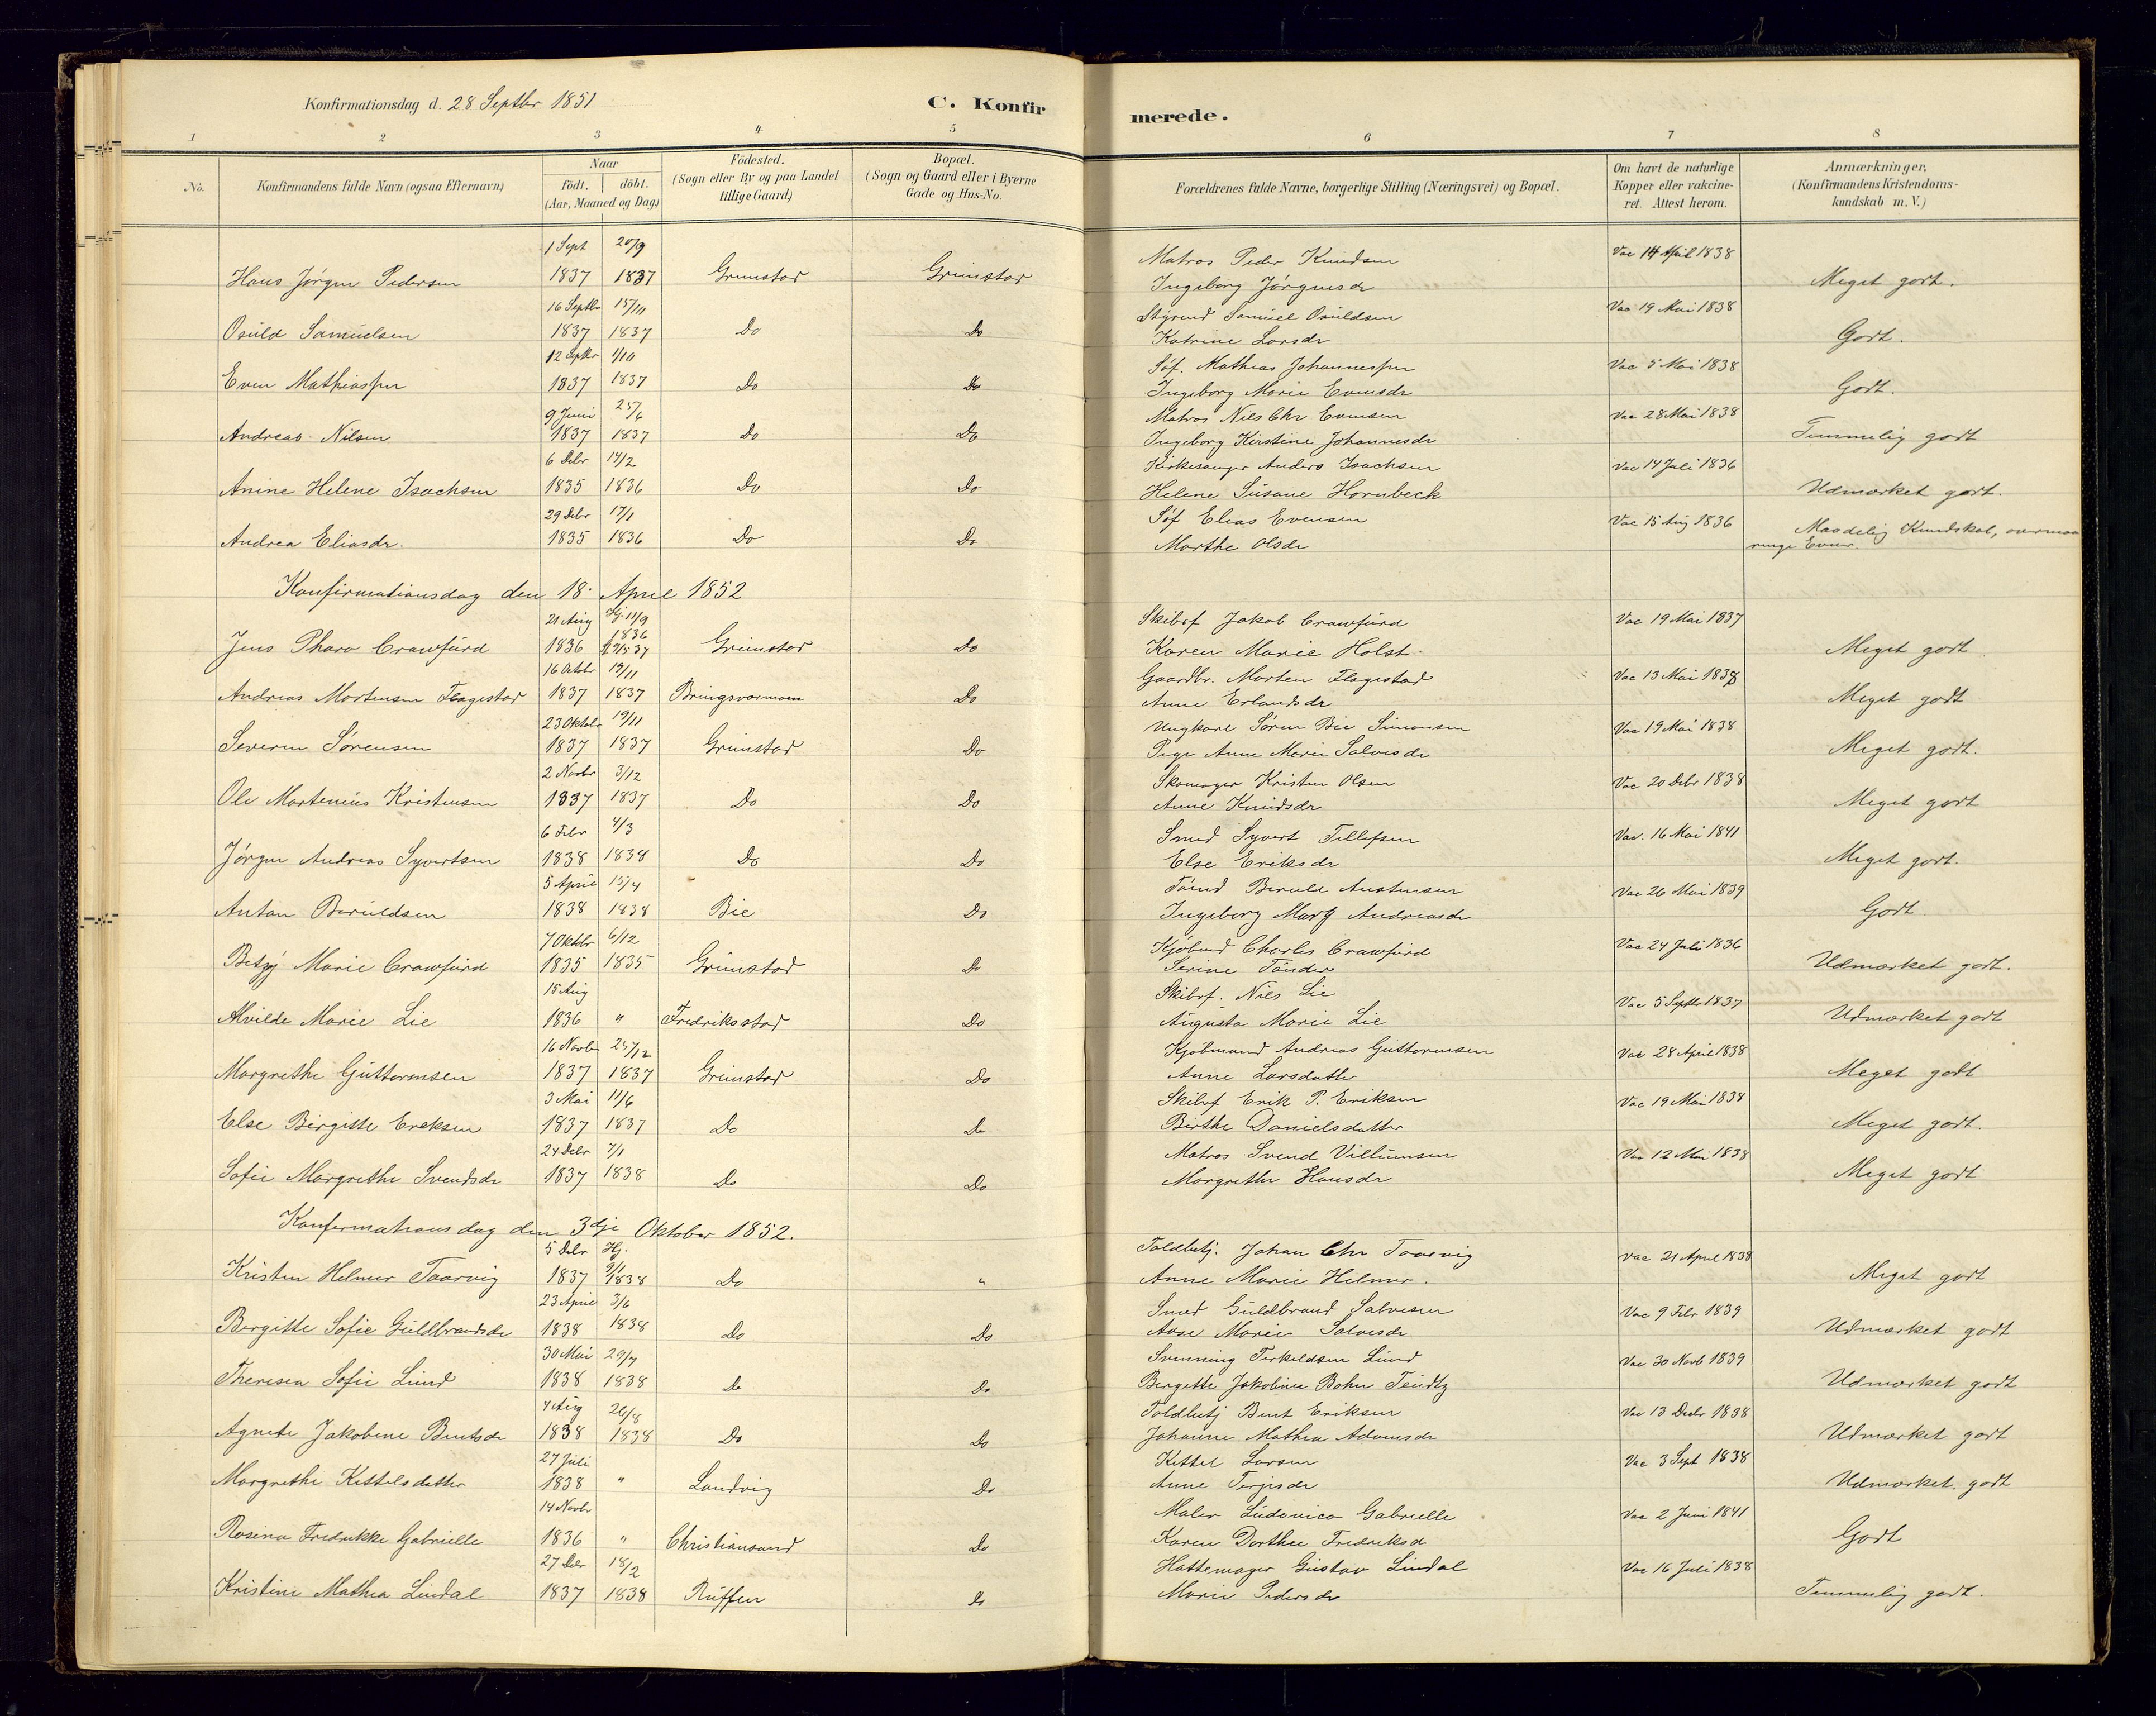 Konfirmationsdag d. 28 Septbr 1851
C. Konfirmerede.
1 2 3 4 5 6 7 8
No. Konfirmandens fulde Navn (ogsaa Efternavn) Naar födt. döbt. (Aar, Maaned og Dag) Födested. (Sogn eller By og paa Landet tillige Gaard) Bopæl. (Sogn og Gaard eller i Byerne Gade og Hus-No. Forældrenes fulde Navne, borgerlige Stilling (Næringsvei) og Bopæl. Om havt de naturlige Kopper eller vakcineret. Attest herom. Anmærkninger, (Konfirmandens Kristendomskundskab m. V.)
1 Sept 20/9 Matros Peder Knudsen Vac 14 April 1838
Hans Jørgen Pedersen 1837 1837 Grimstad Grimstad Ingeborg Jørgensdr Meget godt.
16 Septbr 15/10 Styrmd Samuel Osuldsen Vac 19 Mai 1838
Osuld Samuelsen 1837 1837 Do Do Katrine Larsdr Godt.
12 Septbr 1/10 Søf. Mathias Johannessen Vac 5 Mai 1838
Even Mathiassen 1837 1837 Do Do Ingeborg Marie Evensdr Godt.
9 Juni 25/6 Matros Nils Chr Evensen Vac 28 Mai 1838
Andreas Nilsen 1837 1837 Do Do Ingeborg Kirstine Johannesdr Temmelig godt
6 Debr 14/2 Kirkesanger Anders Isachsen Vac 14 Juli 1836
Anine Helene Isachsen 1835 1836 Do Do Helene Susane Hornbeck Udmærket godt.
29 Debr 17/1 Søf Elias Evensen Vac 15 Aug 1836
Andrea Eliasdr. 1835 1836 Do Do Marthe Olsdr Maadelig Kundskab, overmaa
ringe Evner.
Konfirmationsdag den 18. April 1852
21 Aug Hj. 11/9 1836 Skibsf Jakob Crawfurd Vac 19 Mai 1837
Jens Pharo Crawfurd 1836 Grimstad Do Karen Marie Holst. Meget godt
16 Oktbr 19/11 Gaardbr. Morten Flagestad Vac 13 Mai 1838
Andreas Mortensen Flagestad 1837 1837 Bringsværmoen Do Anne Erlandsdr Meget godt
23 Oktobr 19/11 Ungkarl Søren Bie Simonsen Vac 19 Mai 1838
Severin Sørensen 1837 1837 Grimstad Do Pige Anne Marie Salvesdr Meget godt.
2 Novbr 3/12 Skomager Kristen Olsen Vac 20 Debr 1838
Ole Martenius Kristensen 1837 1837 Do Do Anne Knudsdr Meget godt
6 Febr 4/3 Smed Syvert Tellefsen Vac. 16 Mai 1841
Jørgen Andreas Syvertsen 1838 1838 Do Do Else Eriksdr Meget godt.
5 April 15/4 Beruld Austensen Vac 26 Mai 1839
Anton Beruldsen 1838 1838 Bie Do Ingeborg Marg Andreasdr Godt
7 Oktobr 6/12 Kjøbmd Charles Crawfurd Vac 24 Juli 1836
Betzy Marie Crawfurd 1835 1835 Grimstad Do Serine Tønder Udmærket godt.
15 Aug Skibsf. Nils Lie Vac 5 Septbr 1837
Alvilde Marie Lie 1836 " Fredriksstad Do Augusta Marie Lie Udmærket godt
16 Novbr 25/12 Kjøbmand Andreas Guttormsen Vac 28 April 1838
Margrethe Guttormsen 1837 1837 Grimstad Do Anne Larsdatter Meget godt
3 Mai 11/6 Skibsf Erik P. Eriksen Vac 19 Mai 1838
Else Birgitte Ereksen 1837 1837 Do Do Birthe Danielsdatter Meget godt.
24 Debr 7/1 Matros Svend Villumsen Vac 12 Mai 1838
Sofie Margrethe Svendsdr 1837 1838 Do Do Margrethe Hansdr Meget godt
Konfirmationsdag den 3dje Oktober 1852.
5 Debr Hj. 9/1 Toldbetj. Johan Chr Taarvig Vac 21 April 1838
Kristen Helmer Taarvig 1837 1838 Do " Anne Marie Helmer. Meget godt
23 April 3/6 Smed Guldbrand Salvesen Vac 9 Febr 1839
Birgitte Sofie Guldbrandsdr 1838 1838 Do Do Aase Marie Salvesdr Udmærket godt
30 Mai 29/7 Svenning Terkeldsen Lund Vac 30 Novb 1839
Theresea Sofie Lund 1838 1838 Do Do Birgitte Jakobine Bohn Teudtz Udmærket godt
7 Aug 26/8 Toldbetj Bent Eriksen Vac 13 Decbr 1838
Agnete Jakobene Bentsdr 1838 1838 Do Do Johanne Mathea Adamsdr Udmærket godt
27 Juli Kittel Larsen Vac 3 Sept 1838
Margrethe Kittelsdatter 1838 " Landvig Do Anne Terjesdr Udmærket godt
14 Novbr Maler Ludovico Gabrielle Vac 2 Juni 1841
Rosina Fredrikke Gabrielle 1836 " Christiansand Do Karen Dorthea Fredriksd Godt
27 Debr 18/2 Hattemager Gustav Lindal Vac 16 Juli 1838
Kristine Mathea Lindal 1837 1838 Do Marie Pedersdr Temmelig godt.